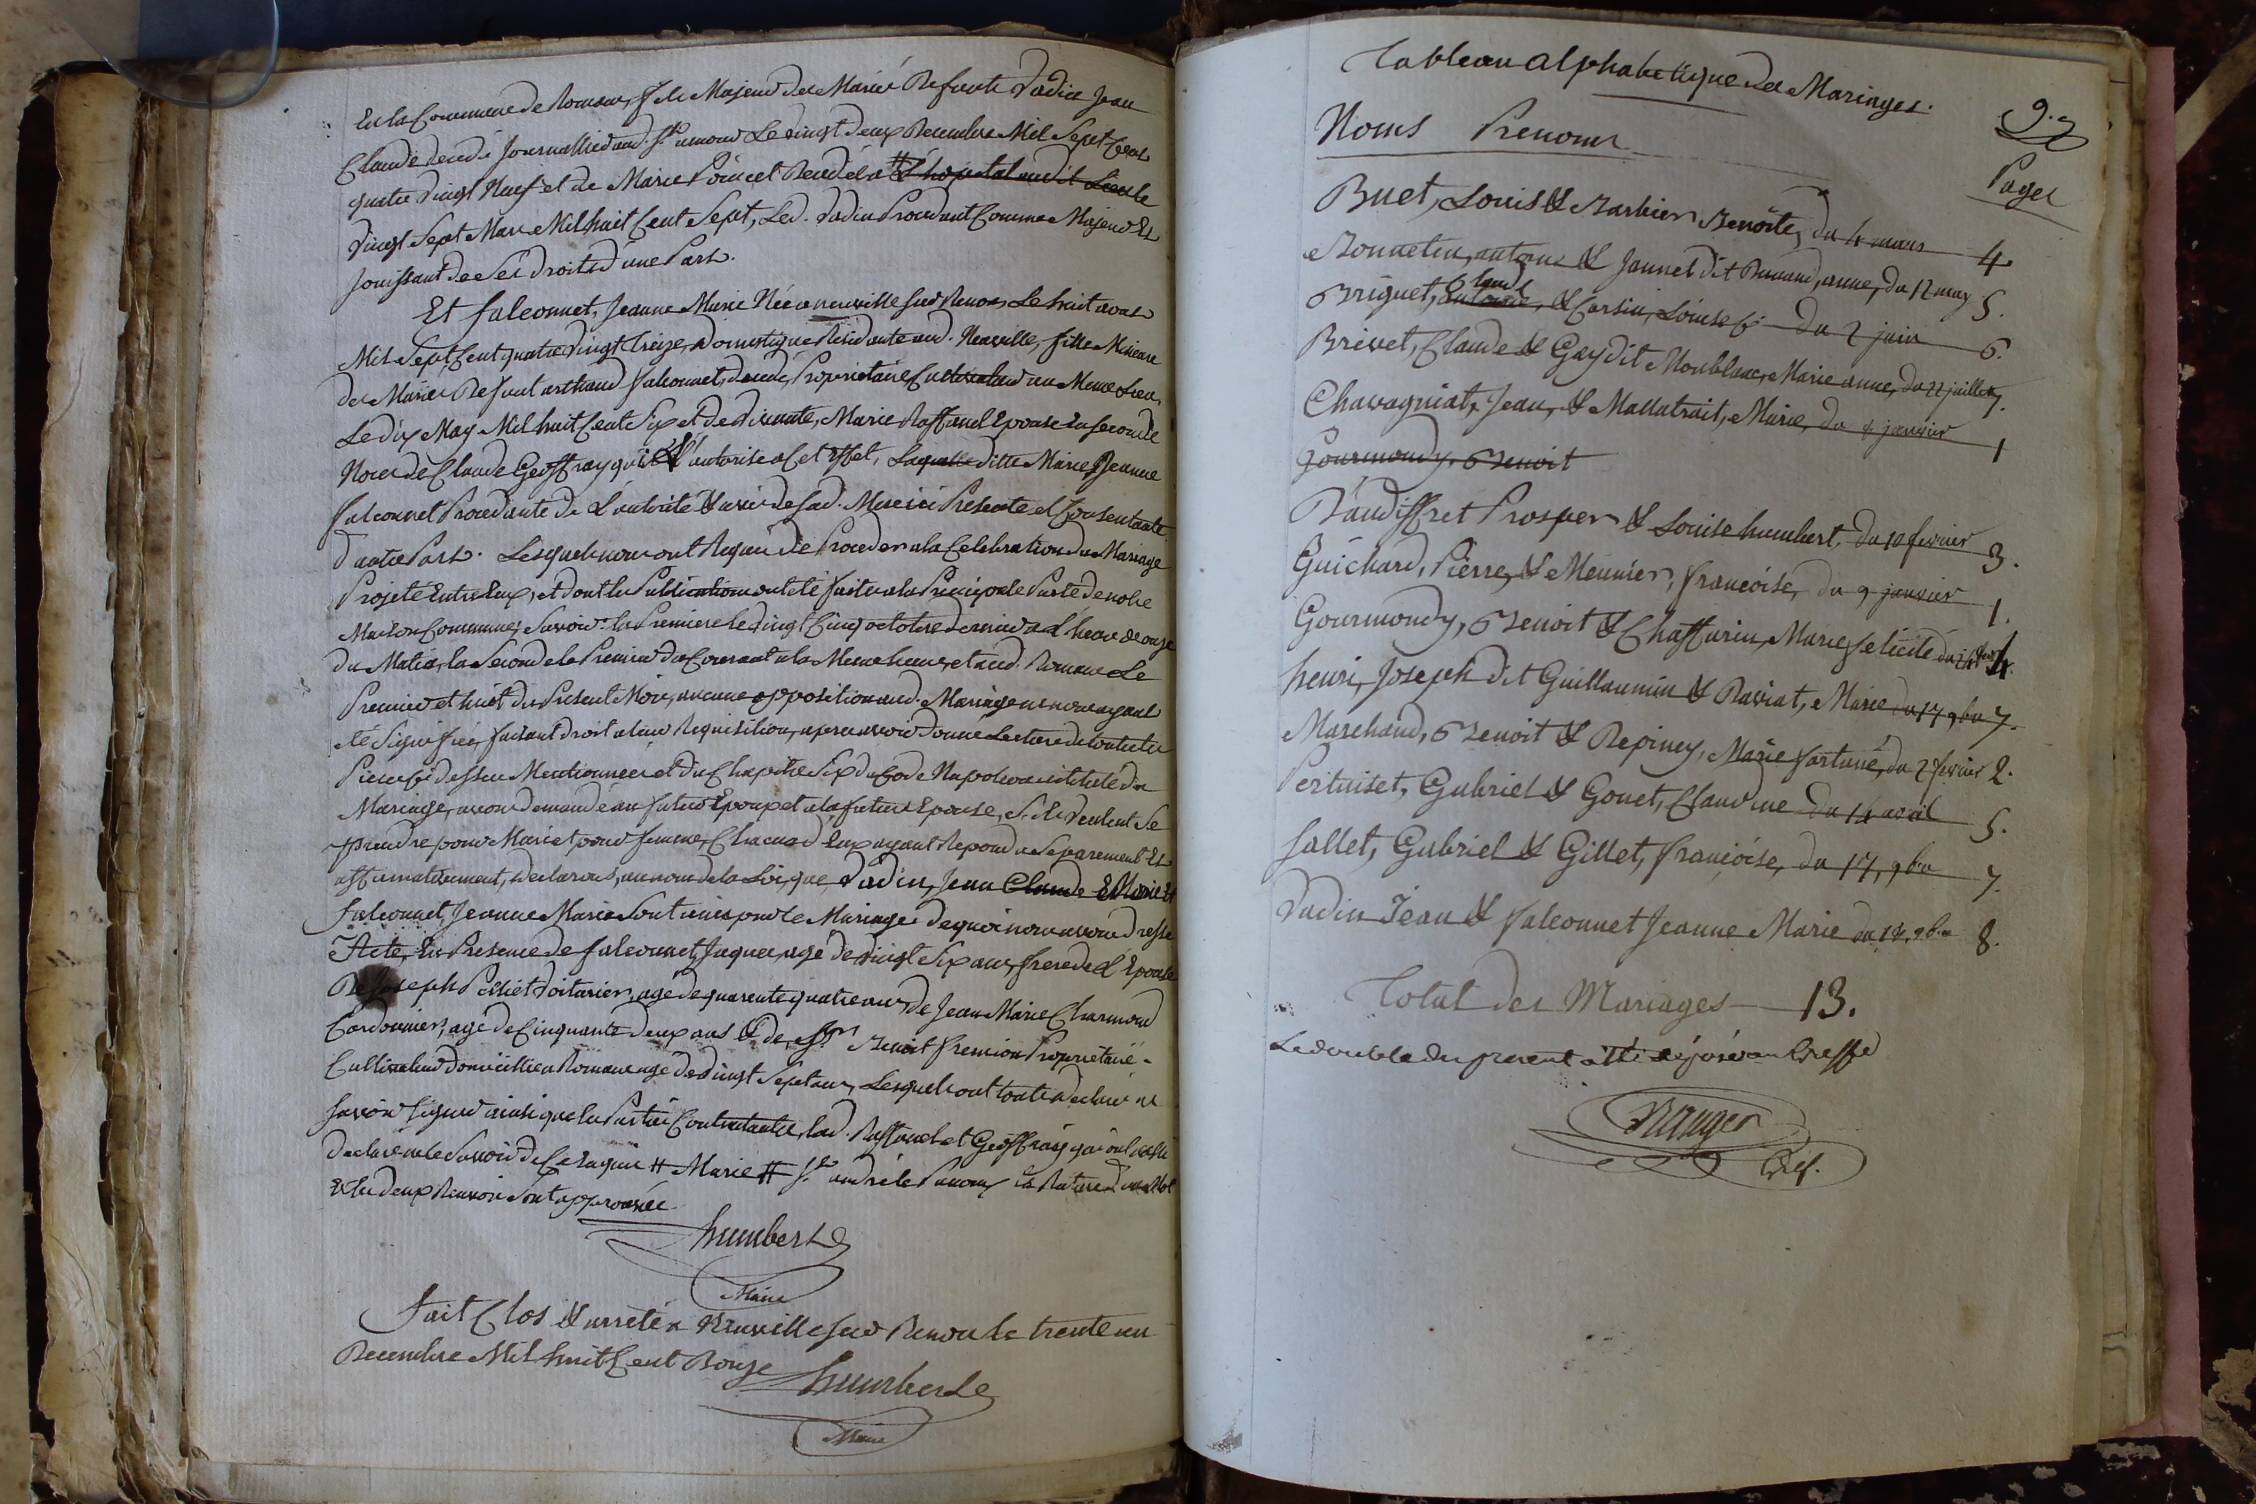 En la Commune de Romans, fils Majeur des Mariés Defunts Vadin Jean
Claude decedé Journallier aud. St amour Le vingt deux Decembre Mil Sept Cent
quatre vingt Neuf et de Marie Poncet Decedée a # L'hopital audit Lieu le
vingt Sept Mars Mil huit Cent Sept, Led. Vadin Procedant Comme Majeur Et
Jouissant de Ses droits d'une Part.
Et falconnet, Jeanne Marie Née a neuville sur Renon, Le huit avril
Mil Sept Cent quatre vingt treize, Domestique Residante aud. Neuville, fille Mineure
des Mariés Defunt arthaud falconnet, decedé, Proprietaire Cultivateur au Meme Lieu,
Le dix May Mil huit Cent Six et de vivante, Marie Raffanel Epouse En seconde
Noces de Claude Geoffray qui L'autorise a Cet Effet, Laquelle ditte Marie Jeanne
falconnet Procedante de L'autorité & avis de Sad. Mere ici Presente et Consentante
d'autre Part. Lesquels nous ont Requis de Proceder a la Celebration du Mariage
Projeté Entre Eux, et dont les Publications ont été faites a la Principale Porte de notre
Maison Commune, Savoir: la Premiere le vingt Cinq octobre dernier a L'heure de onze
du Matin, la Seconde le Premier du Courant a la Meme heure, et aud. Romans Le
Premier et huit du Present Mois, aucune opposition aud. Mariage ne nous ayant
été Signifiée, faisant droit a leur Requisition, apres avoir donné Lecture de toutes les
Pieces Ci dessus Mentionnées et du Chapitre Six du Code Napoleon intitulé du
Mariage, avons demandé au futur Epoux et a la future Epouse, S'ils veulent Se
prendre pour Mari et pour femme, Chacun d'Eux ayant Repondu Separement Et
affirmativement, declarons, au nom de la Loi, que Vadin, Jean Claude Et
falconnet, Jeanne Marie Sont unis par le Mariage de quoi nous avons dressé
Acte, En Presence de falconnet, Jaques, agé de vingt Six ans, frere de L'Epouse
De Joseph Voiturier, agé de quarente quatre ans, de Jean Marie Charmond
Cordonnier, agé de Cinquante deux ans & de Benoit fremion Proprietaire
Cultivateur domicillié a Romans agé de vingt Sept ans, Lesquels ont touts declaré ne
Savoir Signer ainsi que les Parties Contractantes, lad. Raffanel et Geoffray qui ont aussi
declaré ne le Savoir de Ce Requis # Marie # St andré le Panoux la Rature d'un Mot
& les deux Renvois Sont approuvés
humbert
Maire
fait Clos & arreté a Neuville sur Renon le trente un
Decembre Mil huit Cent Douze
humbert
Maire
Tableau alphabetique des Mariages.
9.
Noms Prenoms
Pages
Buet, Louis & Barbier Benoite, du 4 mars 4
Bonnetin, antoine & Jannet dit Durand, anne, du 12 may 5.
Briguet, Claude, & Carsin, Louise Cé du 2 juin 6.
Brevet, Claude & Gay dit Monblanc, Marie anne, du 22 juillet 7.
Chavagniat, Jean, & Mallatrait, Marie, du 9 janvier 1
Gourmondy, Benoit
D'audiffret Prosper & Louise humbert, du 10 fevrier 3.
Guichard, Pierre, & Meunier, françoise, du 9 janvier 1.
Gourmondy, Benoit & Chaffurin, Marie felicité 4
henri, Joseph dit Guillaumin & Raviat, Marie du 17 9bre 7.
Marchand, Benoit & Depiney, Marie fortuné, du 2 fevrier 2.
Pertuiset, Gabriel & Gonet, Claudine du 14 avril 5.
Sallet, Gabriel & Gillet, françoise, du 17, 9bre 7.
Vadin Jean & falconnet Jeanne Marie du 18, 9bre 8.
Total des Mariages 13.
Le double du present a été déposé au Greffe
Greff.